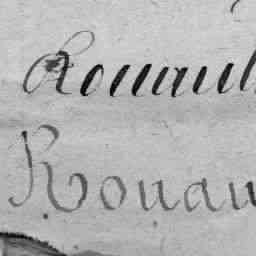 Rouault
Rouau